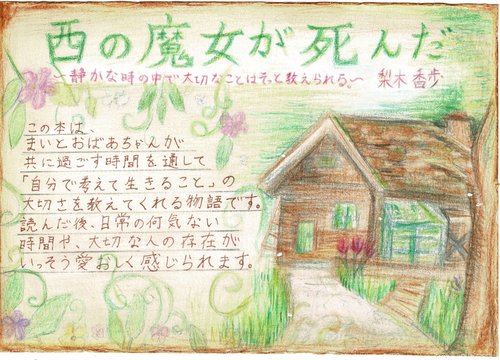 西の魔女が死んだ
〜静かな時の中で大切なことはそっと教えられる。〜 梨木香歩
この本は、
まいとおばあちゃんが
共に過ごす時間を通して
「自分で考えて生きること」の
大切さを教えてくれる物語です。
読んだ後、日常の何気ない
時間や、大切な人の存在が
いっそう愛おしく感じられます。